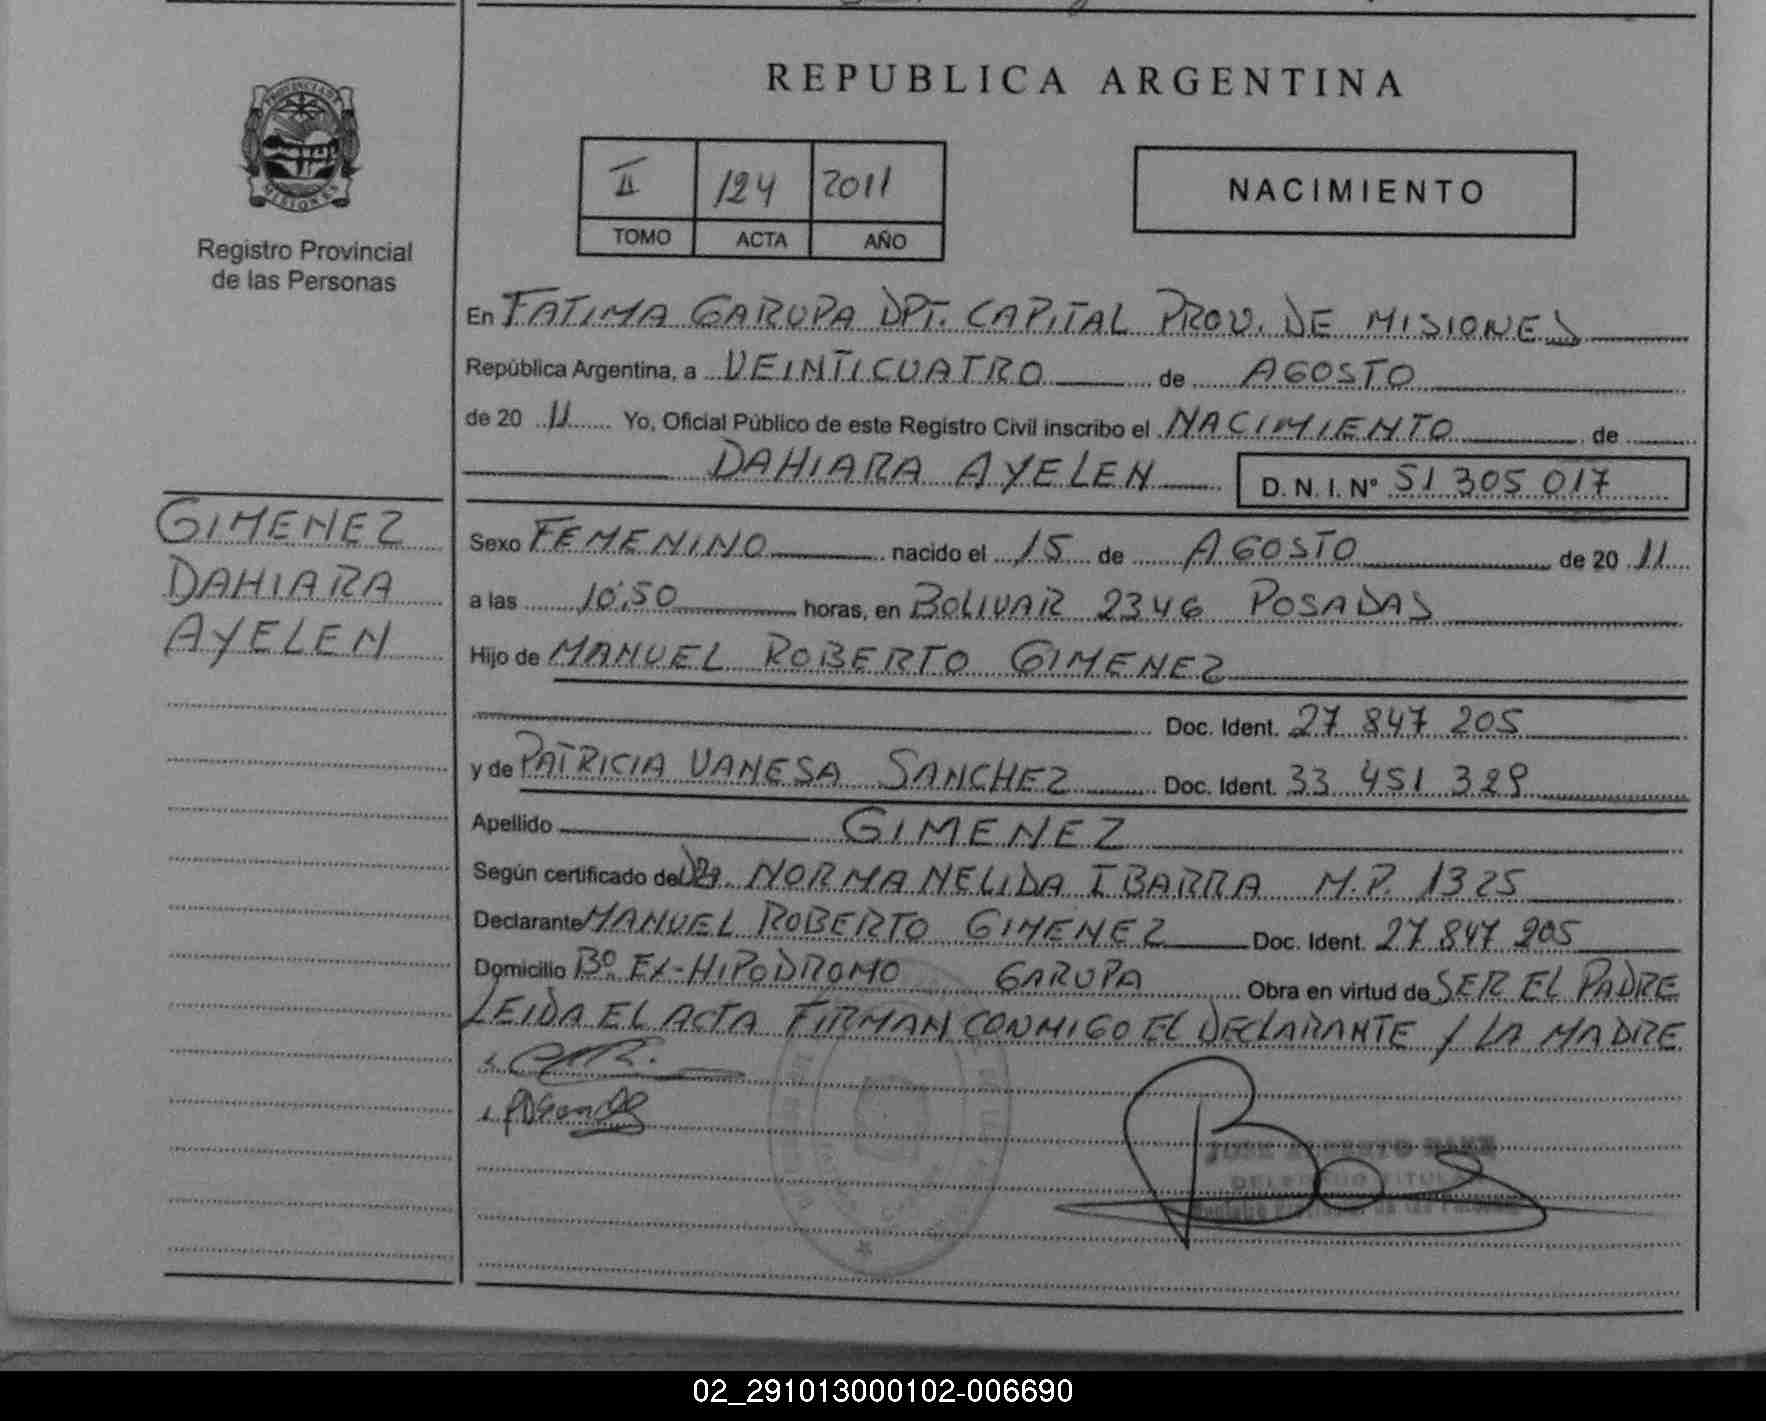 PROVINCIA DE
MISIONES
Registro Provincial
de las Personas
GIMENEZ
DAHIARA
AYELEN
REPUBLICA ARGENTINA
II 124 2011
TOMO ACTA AÑO
NACIMIENTO
En FATIMA GARUPA DPT. CAPITAL PROV. DE MISIONES
República Argentina, a VEINTICUATRO de AGOSTO
de 20 11 Yo, Oficial Público de este Registro Civil inscribo el NACIMIENTO de
DAHIARA AYELEN D. N. I. Nº 51 305 017
Sexo FEMENINO nacido el 15 de AGOSTO de 20 11
a las 10:50 horas, en BOLIVAR 2346 POSADAS
Hijo de MANUEL ROBERTO GIMENEZ
Doc. Ident. 27 847 205
y de PATRICIA VANESA SANCHEZ Doc. Ident. 33 451 329
Apellido GIMENEZ
Según certificado de DRA. NORMA NELIDA IBARRA M.P. 1325
Declarante MANUEL ROBERTO GIMENEZ Doc. Ident. 27 847 205
Domicilio Bº EX-HIPODROMO GARUPA Obra en virtud de SER EL PADRE
LEIDA EL ACTA FIRMAN CONMIGO EL DECLARANTE / LA MADRE
02_291013000102-006690